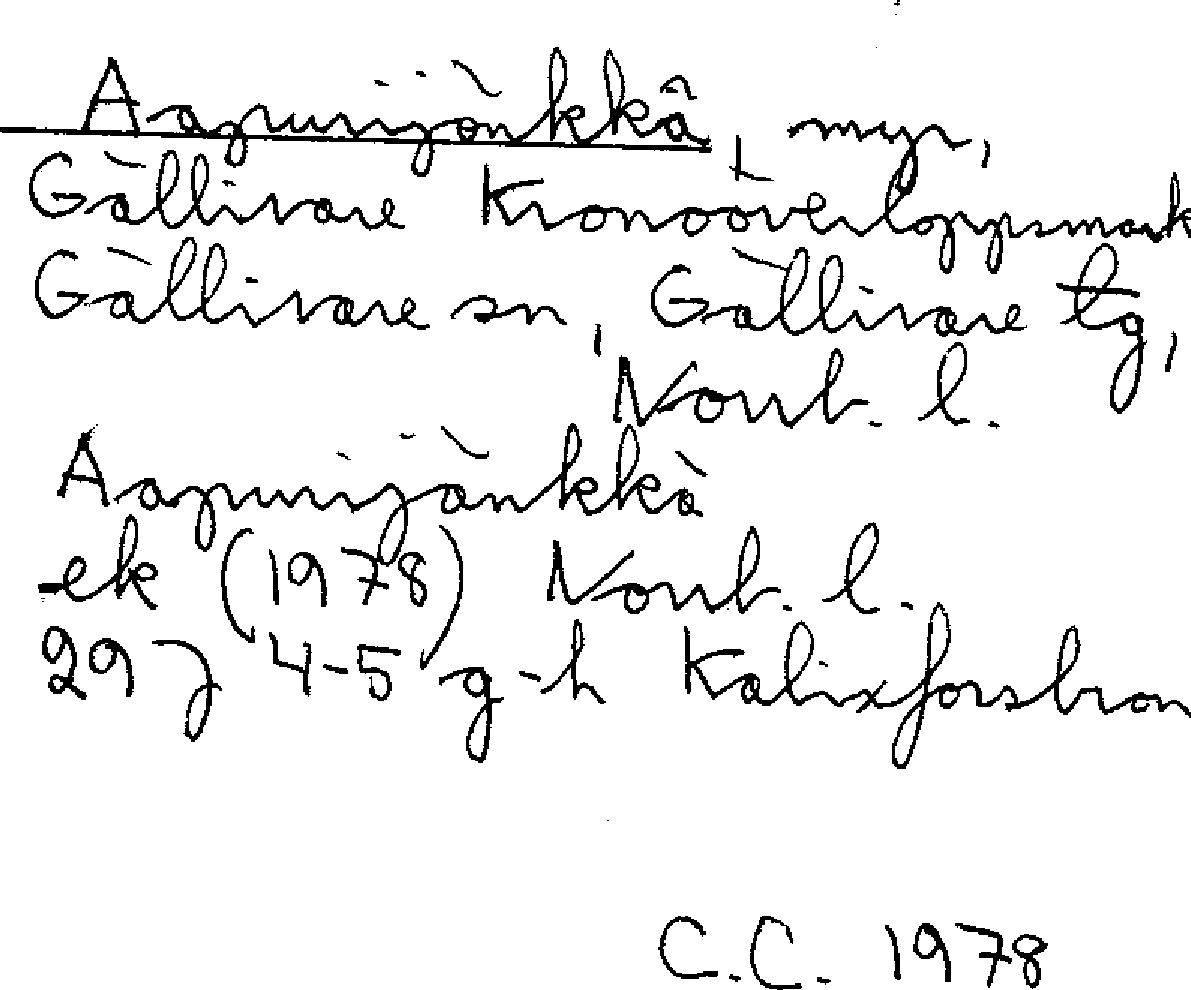 Aapurijänkkä, myr,
Gällivare Kronoöverloppsmark
Gällivare sn, Gällivare tg,
Norrb. l.
Aapurijänkkä
ek (1978) Norrb. l.
29 J 4-5 g-h Kalixforsbron
C.C. 1978